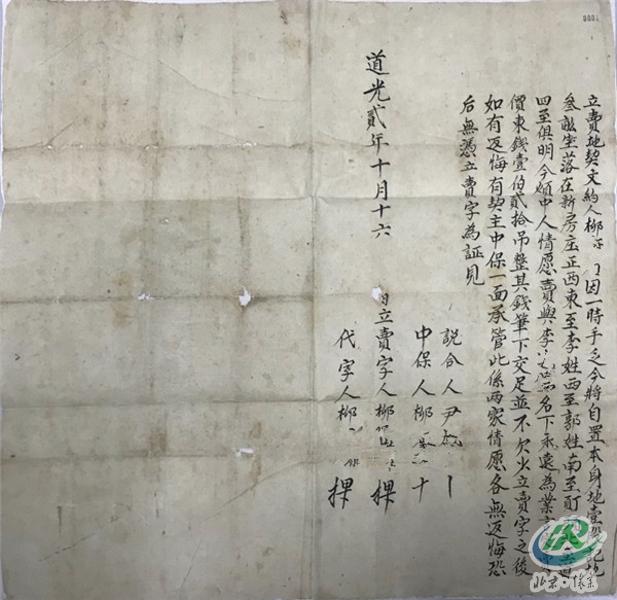 立賣地契文約人柳 因一時手乏今將自置本身地壹段記地
叁畝坐落在新房庄正西東至李姓西至郭姓南至 北至道
四至俱明今煩中人情愿賣與李 名下永遠為業
價東錢壹佰貳拾吊整其錢筆下交足並不欠少立賣字之後
如有返悔有契主中保一面承管此係兩家情愿各無返悔恐
后無憑立賣字為証見
説合人尹
中保人柳 十
道光貳年十月十六 日立賣字人柳 押
代字人柳 押
0001
北京